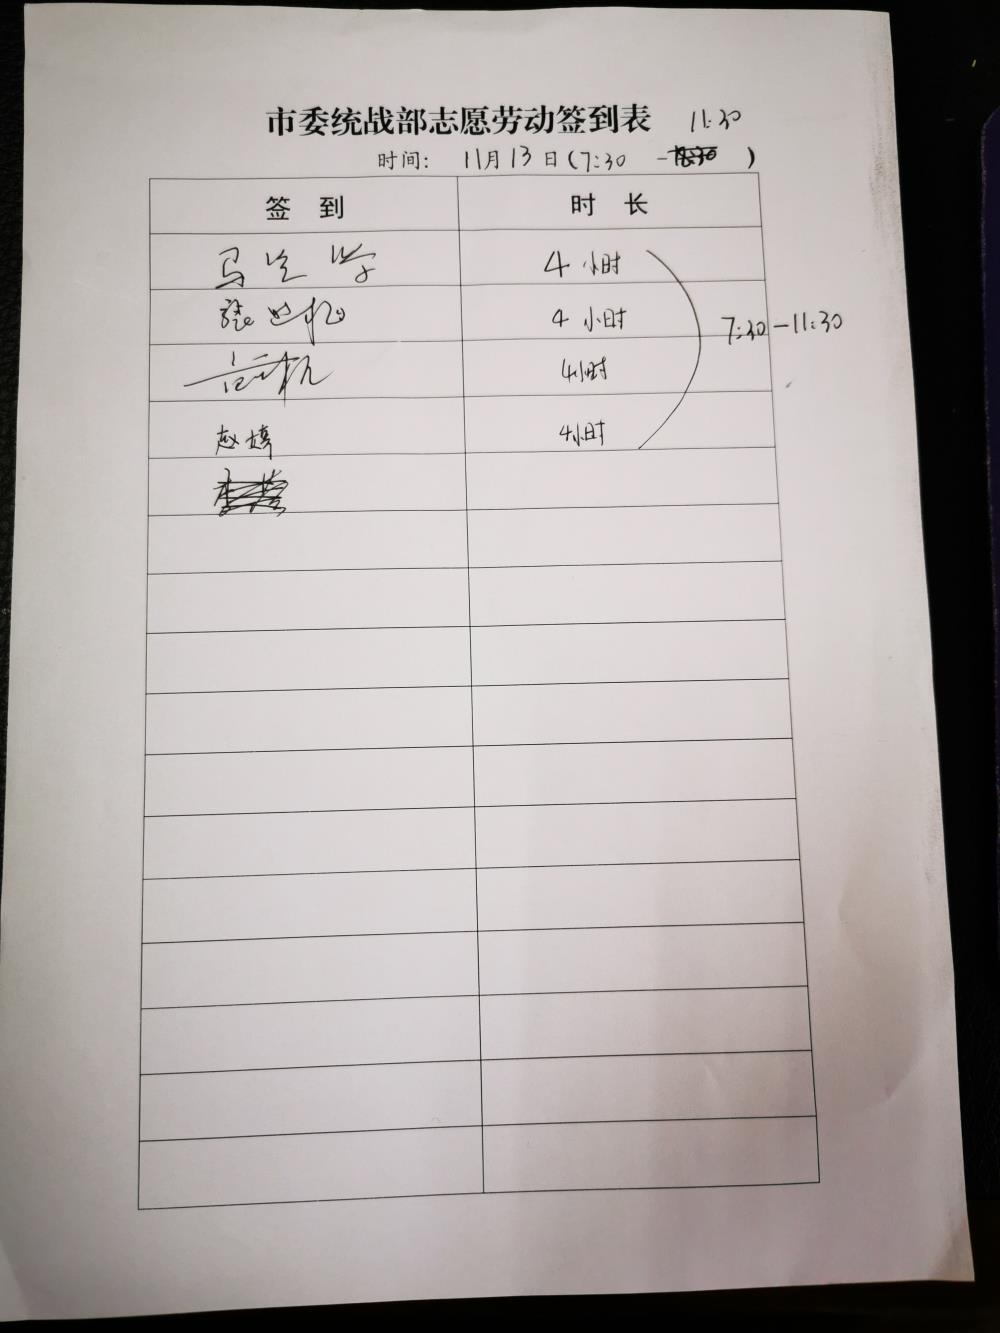 市委统战部志愿劳动签到表 11:30
时间: 11月13日(7:30 - )
签 到 时 长
马 学 4小时
张 4小时
4小时
赵婷 4小时
7:30-11:30